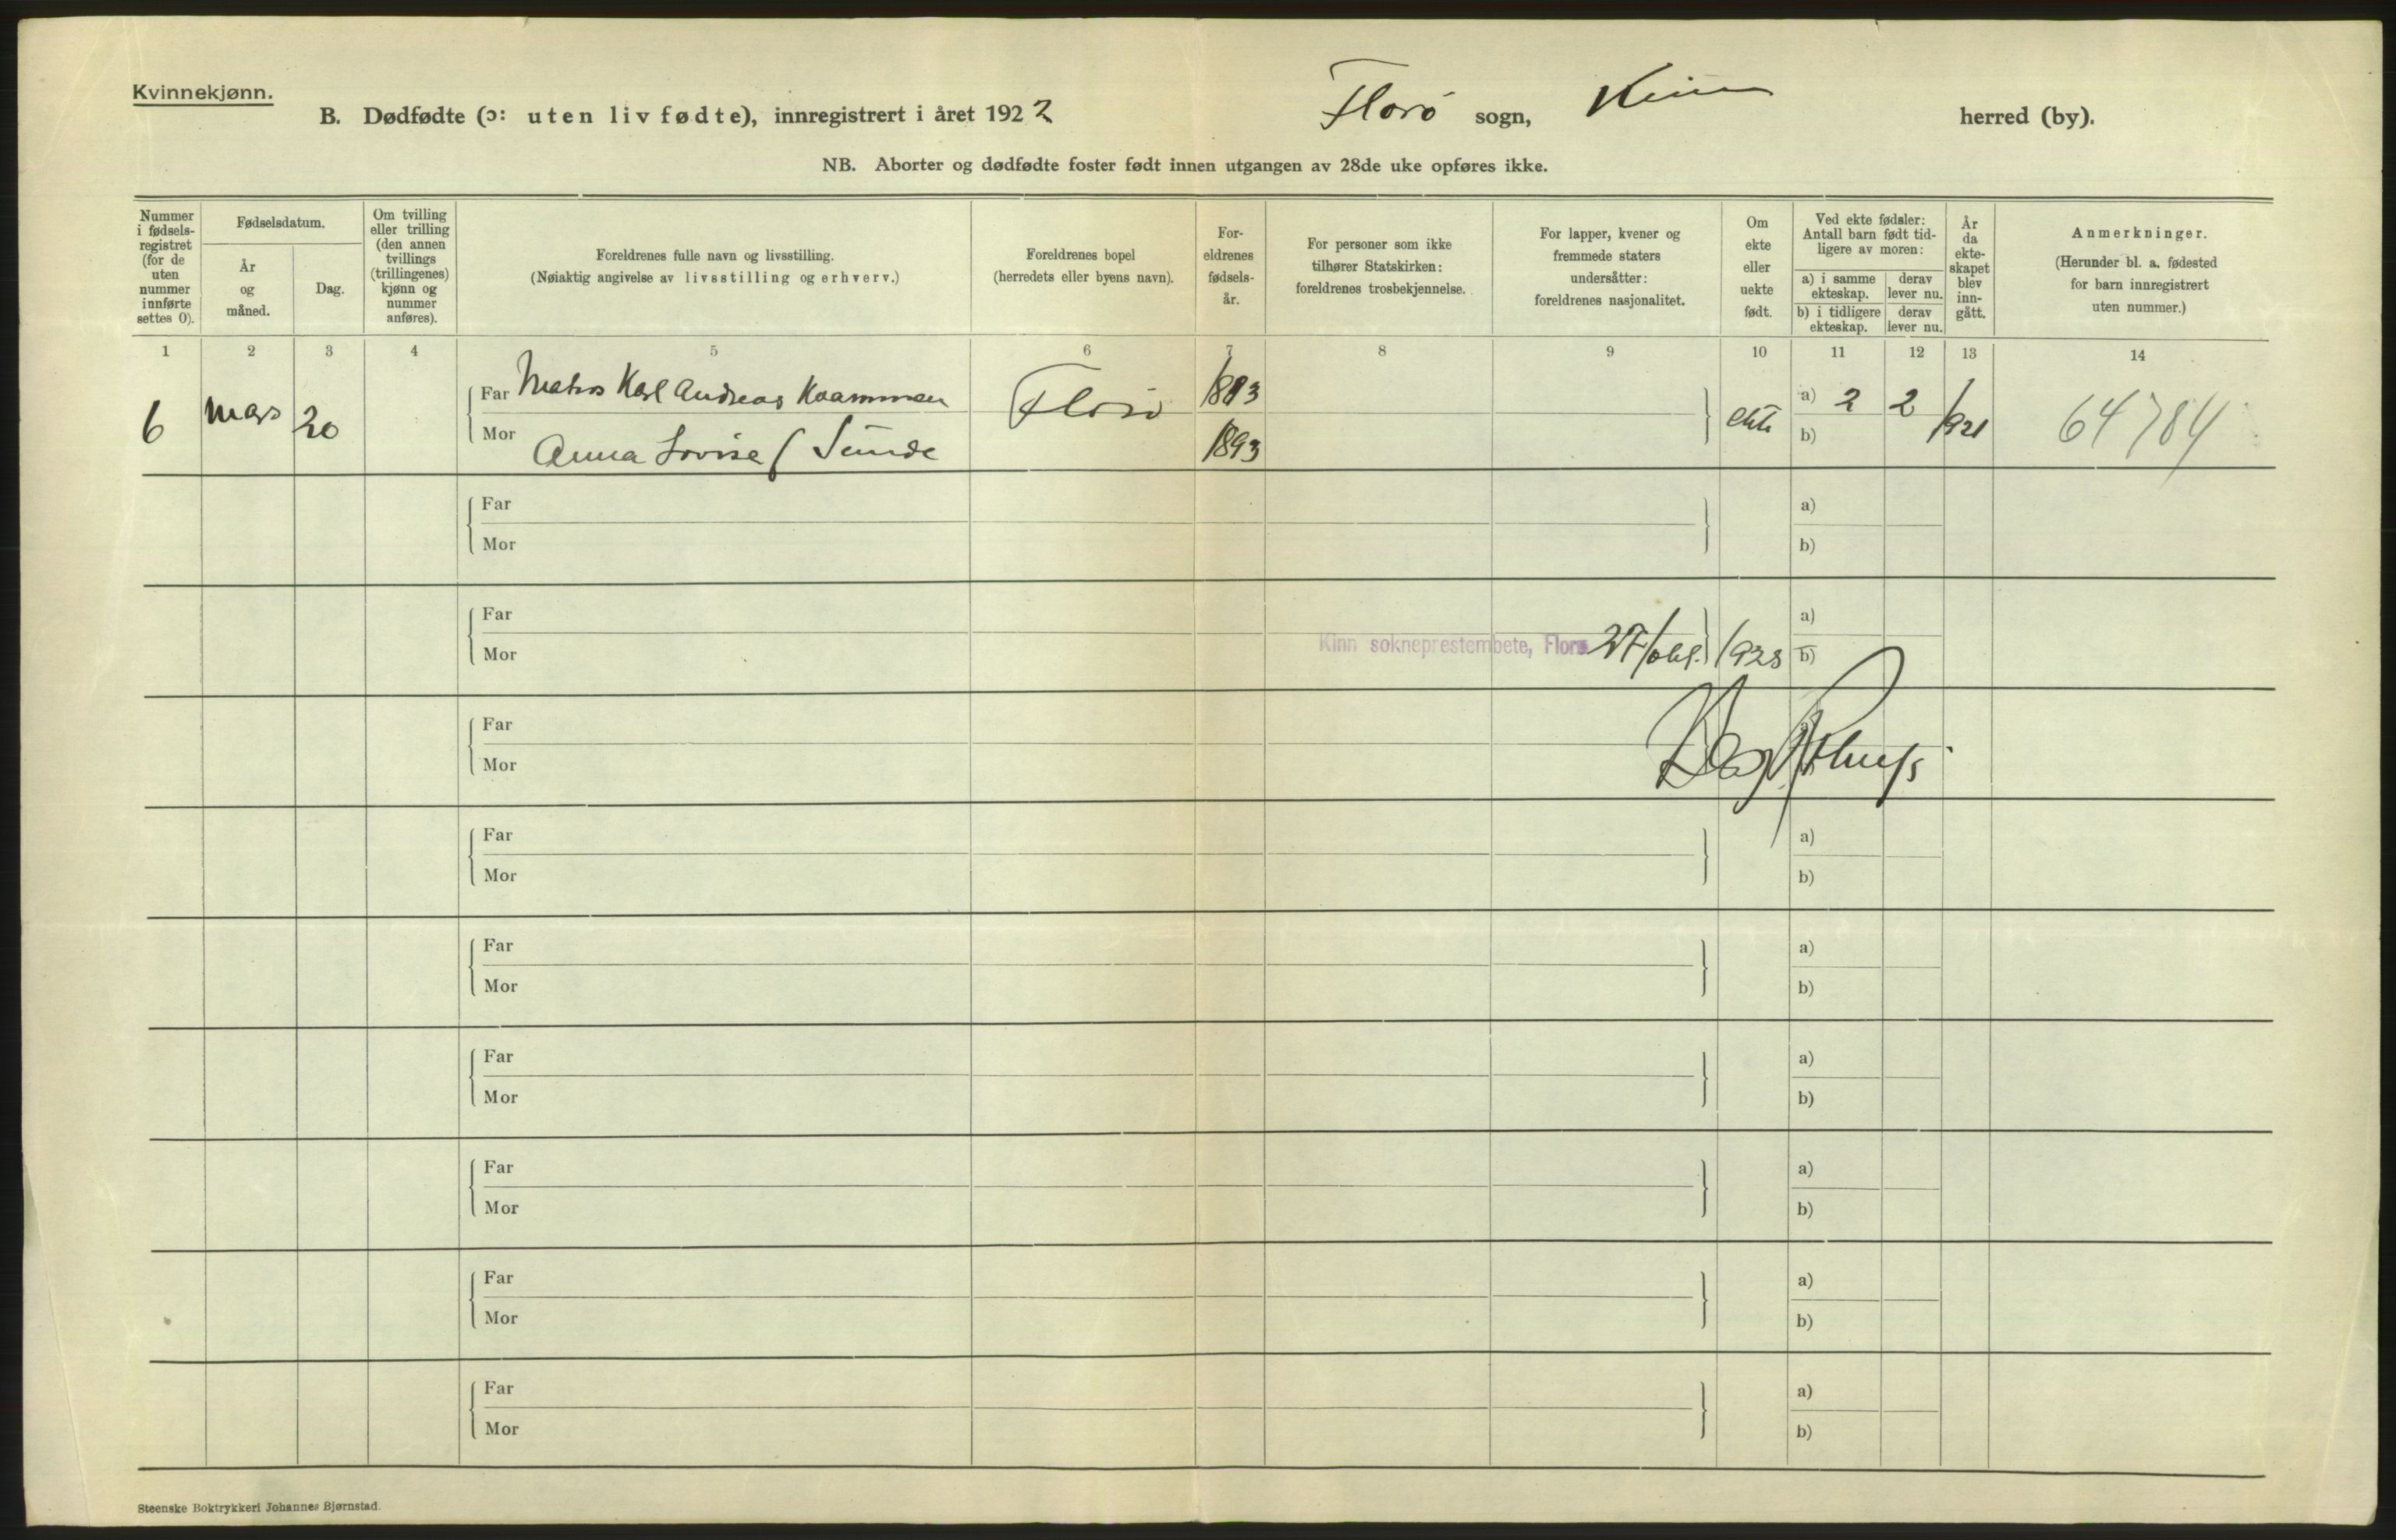 Kvinnekjønn.
B. Dødfødte (ɔ: uten liv fødte), innregistrert i året 1922 Florø sogn, Kinn herred (by).
NB. Aborter og dødfødte foster født innen utgangen av 28de uke opføres ikke.
Nummer i fødsels-registret (for de uten nummer innførte settes 0).
Fødselsdatum.
År og måned.
Dag.
Om tvilling eller trilling (den annen tvillings (trillingenes) kjønn og nummer anføres).
Foreldrenes fulle navn og livsstilling.
(Nøiaktig angivelse av livsstilling og erhverv.)
Foreldrenes bopel
(herredets eller byens navn).
For-eldrenes fødsels-år.
For personer som ikke tilhører Statskirken: foreldrenes trosbekjennelse.
For lapper, kvener og fremmede staters undersåtter: foreldrenes nasjonalitet.
Om ekte eller uekte født.
Ved ekte fødsler: Antall barn født tid-ligere av moren:
a) i samme ekteskap. derav lever nu.
b) i tidligere ekteskap. derav lever nu.
År da ekte-skapet blev inn-gått.
Anmerkninger.
(Herunder bl. a. fødested for barn innregistrert uten nummer.)
1 2 3 4 5 6 7 8 9 10 11 12 13 14
6 Mars 20 Far Matros Karl Andreas Florø 1883 ekte a) 2 2 1921 64784
Mor Anna Lovise f Sunde 1893 b)
Far a)
Mor b)
Far a)
Kinn sokneprestembete, Florø 27/okt. 1923
Mor b)
Far a)
Mor
Far a)
Mor b)
Far a)
Mor b)
Far a)
Mor b)
Far a)
Mor b)
Far a)
Mor b)
Far a)
Mor b)
Steenske Boktrykkeri Johannes Bjørnstad.